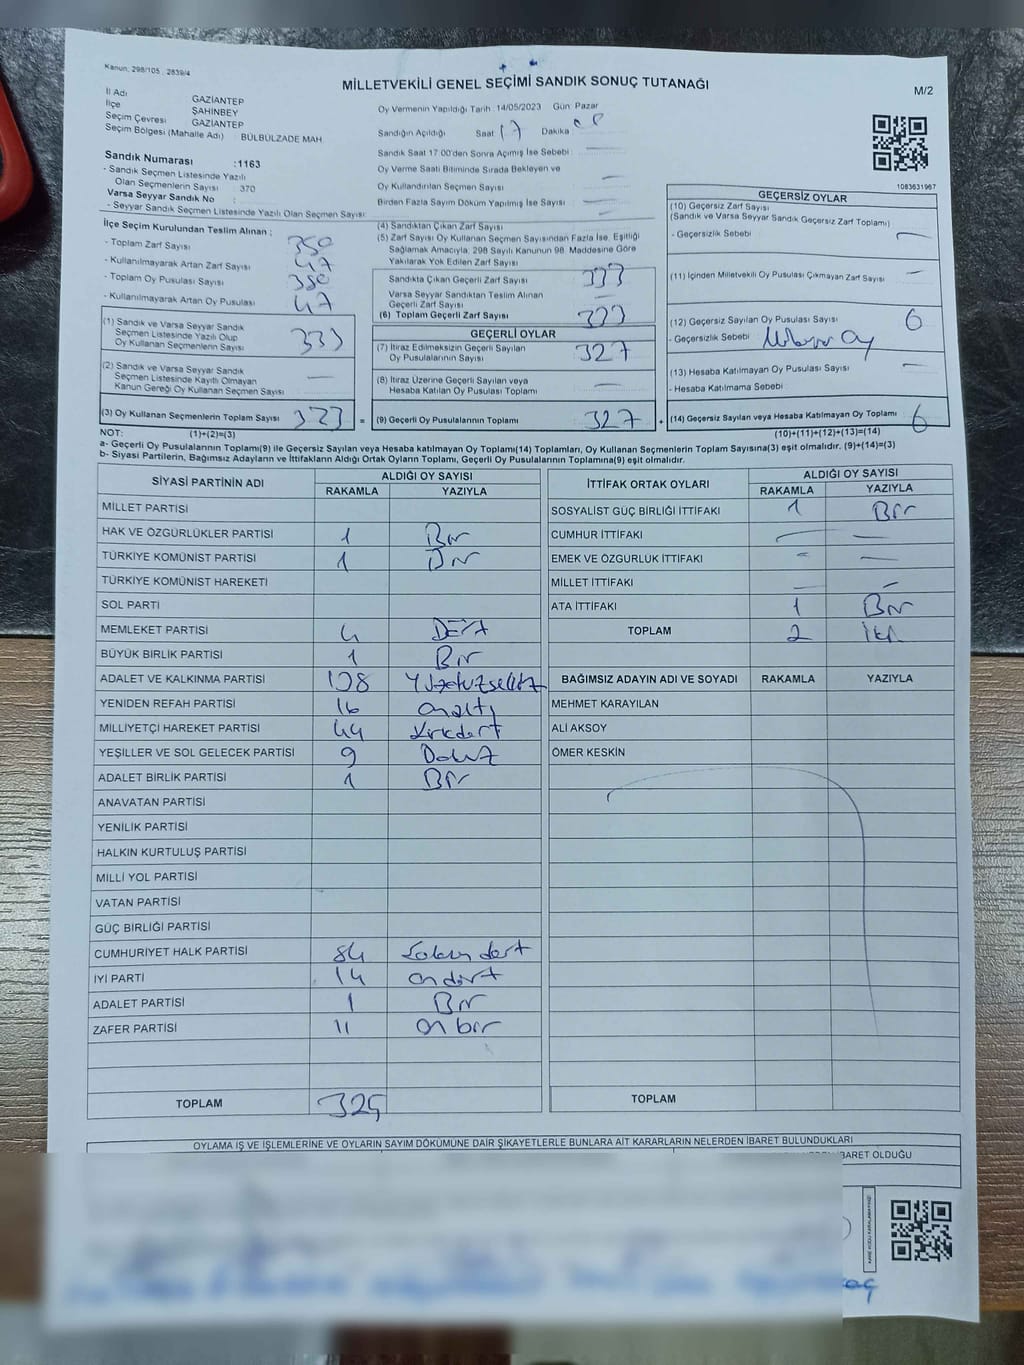 Kanun: 298/105 , 2839/4
MİLLETVEKİLİ GENEL SEÇİMİ SANDIK SONUÇ TUTANAĞI
M/2
İl Adı GAZİANTEP
İlçe ŞAHİNBEY
Seçim Çevresi GAZİANTEP
Seçim Bölgesi (Mahalle Adı) : BÜLBÜLZADE MAH.
Oy Vermenin Yapıldığı Tarih :14/05/2023 Gün: Pazar
Sandığın Açıldığı Saat 17 Dakika
Sandık Saat 17:00'den Sonra Açımış İse Sebebi :
Oy Verme Saati Bitiminde Sırada Bekleyen ve
Oy Kullandırılan Seçmen Sayısı
Birden Fazla Sayım Döküm Yapılmış İse Sayısı :
1083631967
Sandık Numarası :1163
- Sandık Seçmen Listesinde Yazılı
Olan Seçmenlerin Sayısı : 370
Varsa Seyyar Sandık No :
- Seyyar Sandık Seçmen Listesinde Yazılı Olan Seçmen Sayısı:
İlçe Seçim Kurulundan Teslim Alınan :
- Toplam Zarf Sayısı 380
- Kullanılmayarak Artan Zarf Sayısı 47
- Toplam Oy Pusulası Sayısı 380
- Kullanılmayarak Artan Oy Pusulası 47
(1) Sandık ve Varsa Seyyar Sandık
Seçmen Listesinde Yazılı Olup
Oy Kullanan Seçmenlerin Sayısı 333
(2) Sandık ve Varsa Seyyar Sandık
Seçmen Listesinde Kayıtlı Olmayan
Kanun Gereği Oy Kullanan Seçmen Sayısı
(3) Oy Kullanan Seçmenlerin Toplam Sayısı 333
(4) Sandıktan Çıkan Zarf Sayısı
(5) Zarf Sayısı Oy Kullanan Seçmen Sayısından Fazla İse, Eşitliği
Sağlamak Amacıyla, 298 Sayılı Kanunun 98. Maddesine Göre
Yakılarak Yok Edilen Zarf Sayısı
Sandıkta Çıkan Geçerli Zarf Sayısı 333
Varsa Seyyar Sandıktan Teslim Alınan
Geçerli Zarf Sayısı
(6) Toplam Geçerli Zarf Sayısı 333
GEÇERLİ OYLAR
(7) İtiraz Edilmeksizin Geçerli Sayılan
Oy Pusulalarının Sayısı 327
(8) İtiraz Üzerine Geçerli Sayılan veya
Hesaba Katılan Oy Pusulaları Toplamı
= (9) Geçerli Oy Pusulalarının Toplamı 327 +
GEÇERSİZ OYLAR
(10) Geçersiz Zarf Sayısı
(Sandık ve Varsa Seyyar Sandık Geçersiz Zarf Toplamı)
- Geçersizlik Sebebi
(11) İçinden Milletvekili Oy Pusulası Çıkmayan Zarf Sayısı
(12) Geçersiz Sayılan Oy Pusulası Sayısı 6
- Geçersizlik Sebebi
(13) Hesaba Katılmayan Oy Pusulası Sayısı
- Hesaba Katmama Sebebi
(14) Geçersiz Sayılan veya Hesaba Katılmayan Oy Toplamı 6
NOT: (1)+(2)=(3)
(10)+(11)+(12)+(13)=(14)
a- Geçerli Oy Pusulalarının Toplamı(9) ile Geçersiz Sayılan veya Hesaba katılmayan Oy Toplamı(14) Toplamları, Oy Kullanan Seçmenlerin Toplam Sayısına(3) eşit olmalıdır. (9)+(14)=(3)
b- Siyasi Partilerin, Bağımsız Adayların ve İttifakların Aldığı Ortak Oyların Toplamı, Geçerli Oy Pusulalarının Toplamına(9) eşit olmalıdır.
SİYASİ PARTİNİN ADI ALDIĞI OY SAYISI
RAKAMLA YAZIYLA
MİLLET PARTİSİ
HAK VE ÖZGÜRLÜKLER PARTİSİ 1 Bir
TÜRKİYE KOMÜNİST PARTİSİ 1 Bir
TÜRKİYE KOMÜNİST HAREKETİ
SOL PARTİ
MEMLEKET PARTİSİ 4 Dört
BÜYÜK BİRLİK PARTİSİ 1 Bir
ADALET VE KALKINMA PARTİSİ 138 Yüzotuzsekiz
YENİDEN REFAH PARTİSİ 16 onaltı
MİLLİYETÇİ HAREKET PARTİSİ 44 Kırkdört
YEŞİLLER VE SOL GELECEK PARTİSİ 9 Dokuz
ADALET BİRLİK PARTİSİ 1 Bir
ANAVATAN PARTİSİ
YENİLİK PARTİSİ
HALKIN KURTULUŞ PARTİSİ
MİLLİ YOL PARTİSİ
VATAN PARTİSİ
GÜÇ BİRLİĞİ PARTİSİ
CUMHURİYET HALK PARTİSİ 84 Seksendört
İYİ PARTİ 14 ondört
ADALET PARTİSİ 1 Bir
ZAFER PARTİSİ 11 onbir
TOPLAM 325
İTTİFAK ORTAK OYLARI ALDIĞI OY SAYISI
RAKAMLA YAZIYLA
SOSYALİST GÜÇ BİRLİĞİ İTTİFAKI 1 Bir
CUMHUR İTTİFAKI
EMEK VE ÖZGÜRLÜK İTTİFAKI
MİLLET İTTİFAKI
ATA İTTİFAKI 1 Bir
TOPLAM 2 iki
BAĞIMSIZ ADAYIN ADI VE SOYADI RAKAMLA YAZIYLA
MEHMET KARAYILAN
ALİ AKSOY
ÖMER KESKİN
TOPLAM
OYLAMA İŞ VE İŞLEMLERİNE VE OYLARIN SAYIM DÖKÜMÜNE DAİR ŞİKAYETLERLE BUNLARA AİT KARARLARIN NELERDEN İBARET BULUNDUKLARI
BARET OLDUĞU